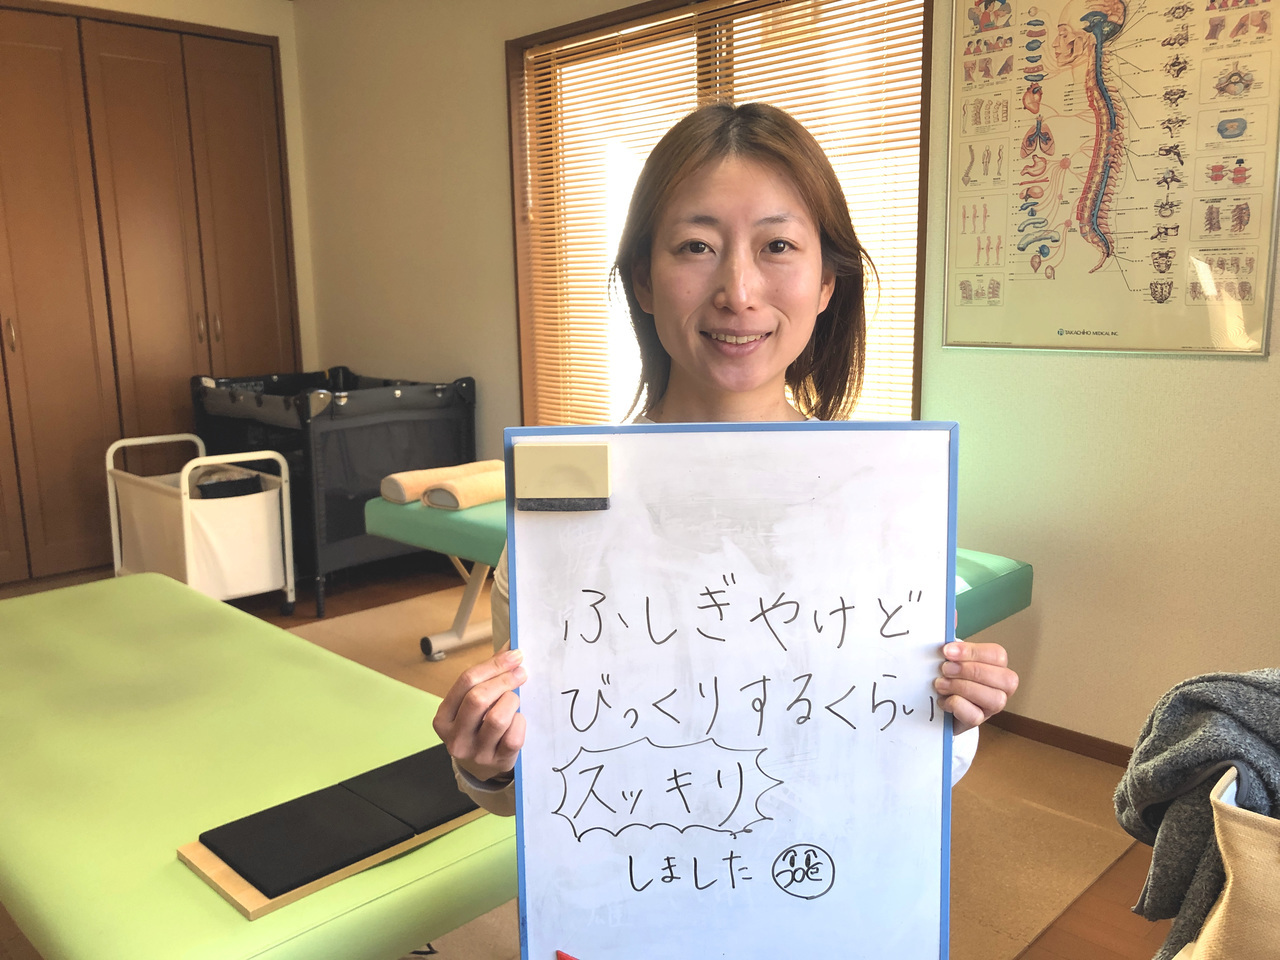 ふしぎやけど
びっくりするくらい
スッキリ
しました
TAKACHIHO MEDICAL INC.